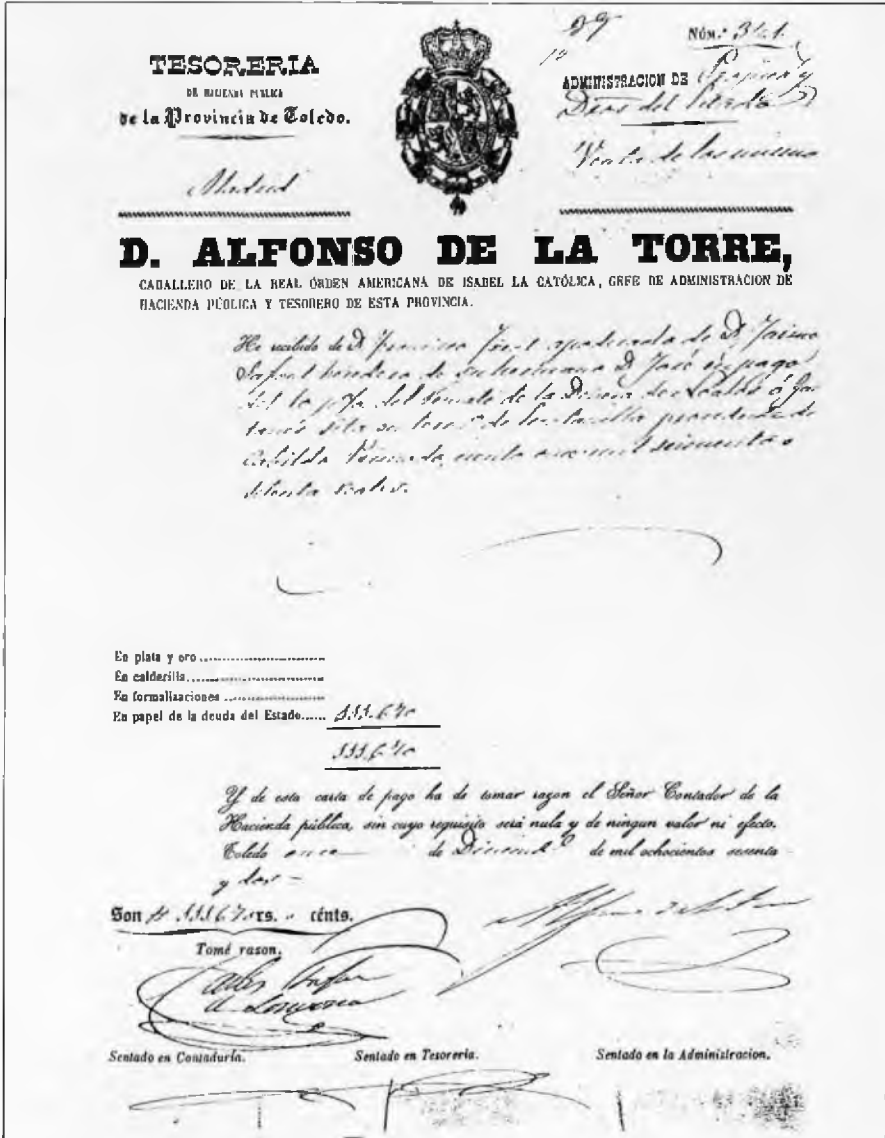 TESORERIA
DE HACIENDA PUBLICA
de la Provincia de Toledo.
Madrid
29
Núm.º 341.
ADMINISTRACION DE
del Estado
Venta de las mismas
D. ALFONSO DE LA TORRE,
CABALLERO DE LA REAL ÓRDEN AMERICANA DE ISABEL LA CATÓLICA, GEFE DE ADMINISTRACION DE
HACIENDA PÚBLICA Y TESORERO DE ESTA PROVINCIA.
He recibido de D. Francisco apoderado de D. Jaime
heredero de su hermano D. José en pago
del remate de la Dehesa de
sita en de procedente de
Cabildo ciento once mil seiscientos
setenta reales.
En plata y oro
En calderilla
En formalizaciones
En papel de la deuda del Estado 111.670
111.670
Y de esta carta de pago ha de tomar razon el Señor Contador de la
Hacienda pública, sin cuyo requisito será nula y de ningun valor ni efecto.
Toledo once de Diciembre de mil ochocientos sesenta
y dos
Son 111.670 rs. cénts.
Tomé razon.
Sentado en Contaduría. Sentado en Tesorería. Sentado en la Administracion.